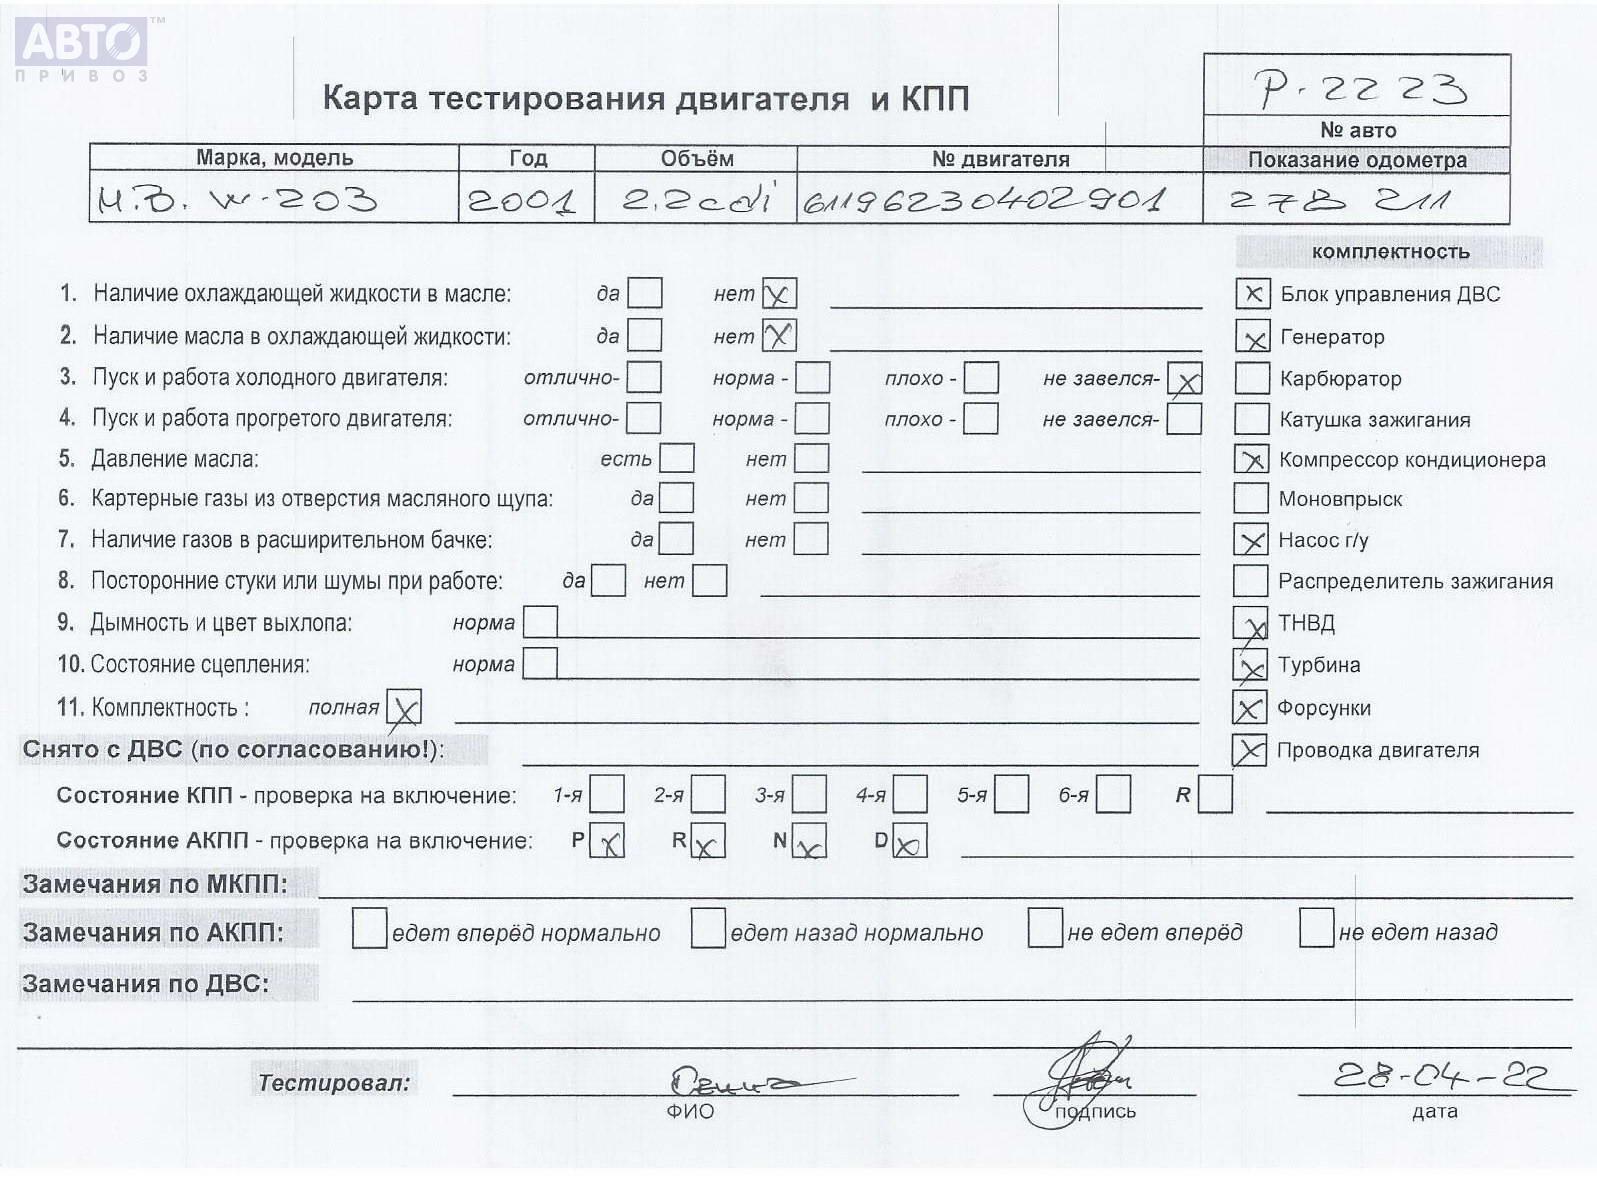 АВТО™
ПРИВОЗ
Карта тестирования двигателя и КПП
Р-2223
№ авто
Марка, модель Год Объём № двигателя Показание одометра
М.В. W-203 2001 2.2cdi 61196230402901 278 211
комплектность
1. Наличие охлаждающей жидкости в масле: да нет X
X Блок управления ДВС
2. Наличие масла в охлаждающей жидкости: да нет X
X Генератор
3. Пуск и работа холодного двигателя: отлично- норма - плохо - не завелся- X
Карбюратор
4. Пуск и работа прогретого двигателя: отлично- норма - плохо - не завелся-
Катушка зажигания
5. Давление масла: есть нет
X Компрессор кондиционера
6. Картерные газы из отверстия масляного щупа: да нет
Моновпрыск
7. Наличие газов в расширительном бачке: да нет
X Насос г/у
8. Посторонние стуки или шумы при работе: да нет
Распределитель зажигания
9. Дымность и цвет выхлопа: норма
X ТНВД
10. Состояние сцепления: норма
X Турбина
11. Комплектность : полная X
X Форсунки
Снято с ДВС (по согласованию!):
X Проводка двигателя
Состояние КПП - проверка на включение: 1-я 2-я 3-я 4-я 5-я 6-я R
Состояние АКПП - проверка на включение: P X R X N X D X
Замечания по МКПП:
Замечания по АКПП: едет вперёд нормально едет назад нормально не едет вперёд не едет назад
Замечания по ДВС:
Тестировал: 28-04-22
ФИО подпись дата